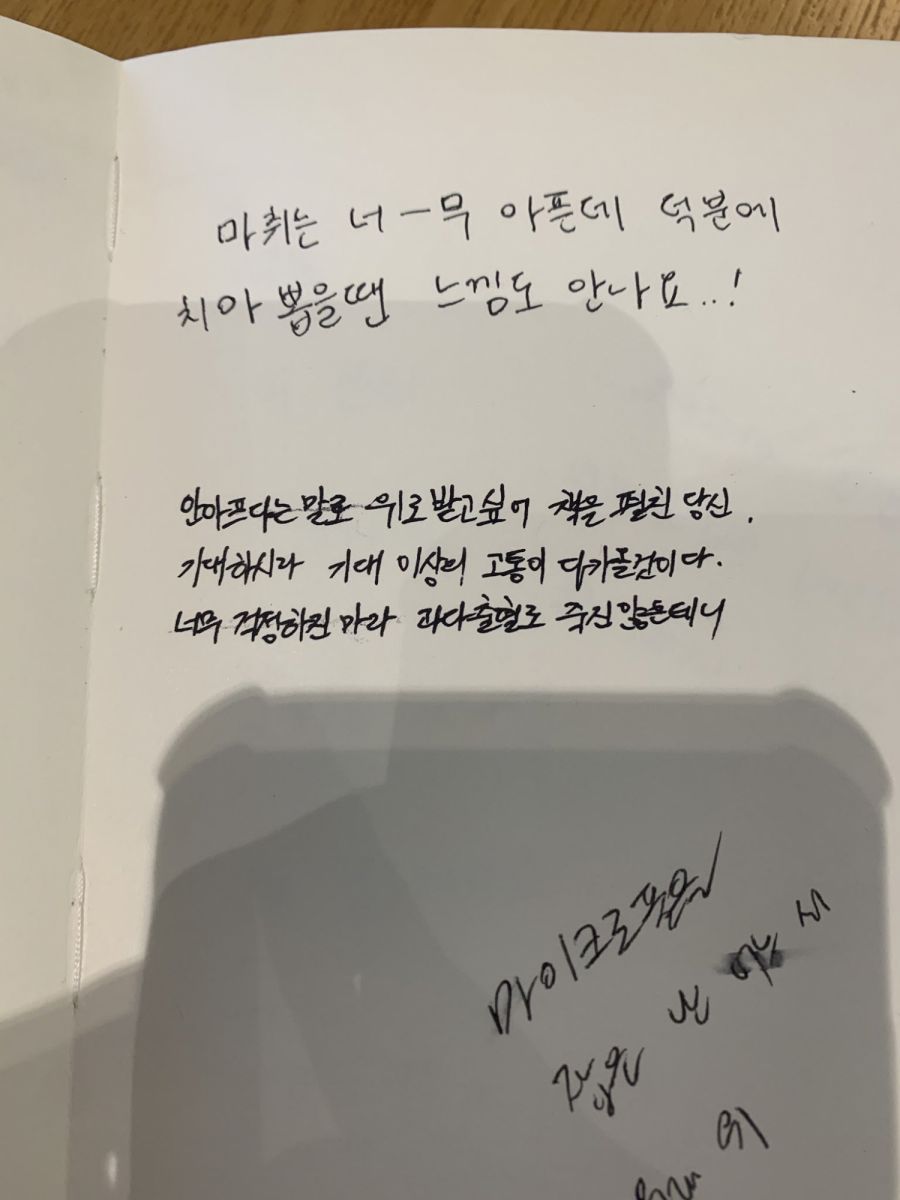 마취는 너ー무 아픈데 덕분에
치아 뽑을땐 느낌도 안나요..!
안아프다는 말로 위로받고싶어 책을 펼친 당신.
기대하시라 기대 이상의 고통이 다가올것이다.
너무 걱정하진 마라 과다출혈로 죽진 않을테니
마이크로폰을
잡은 난